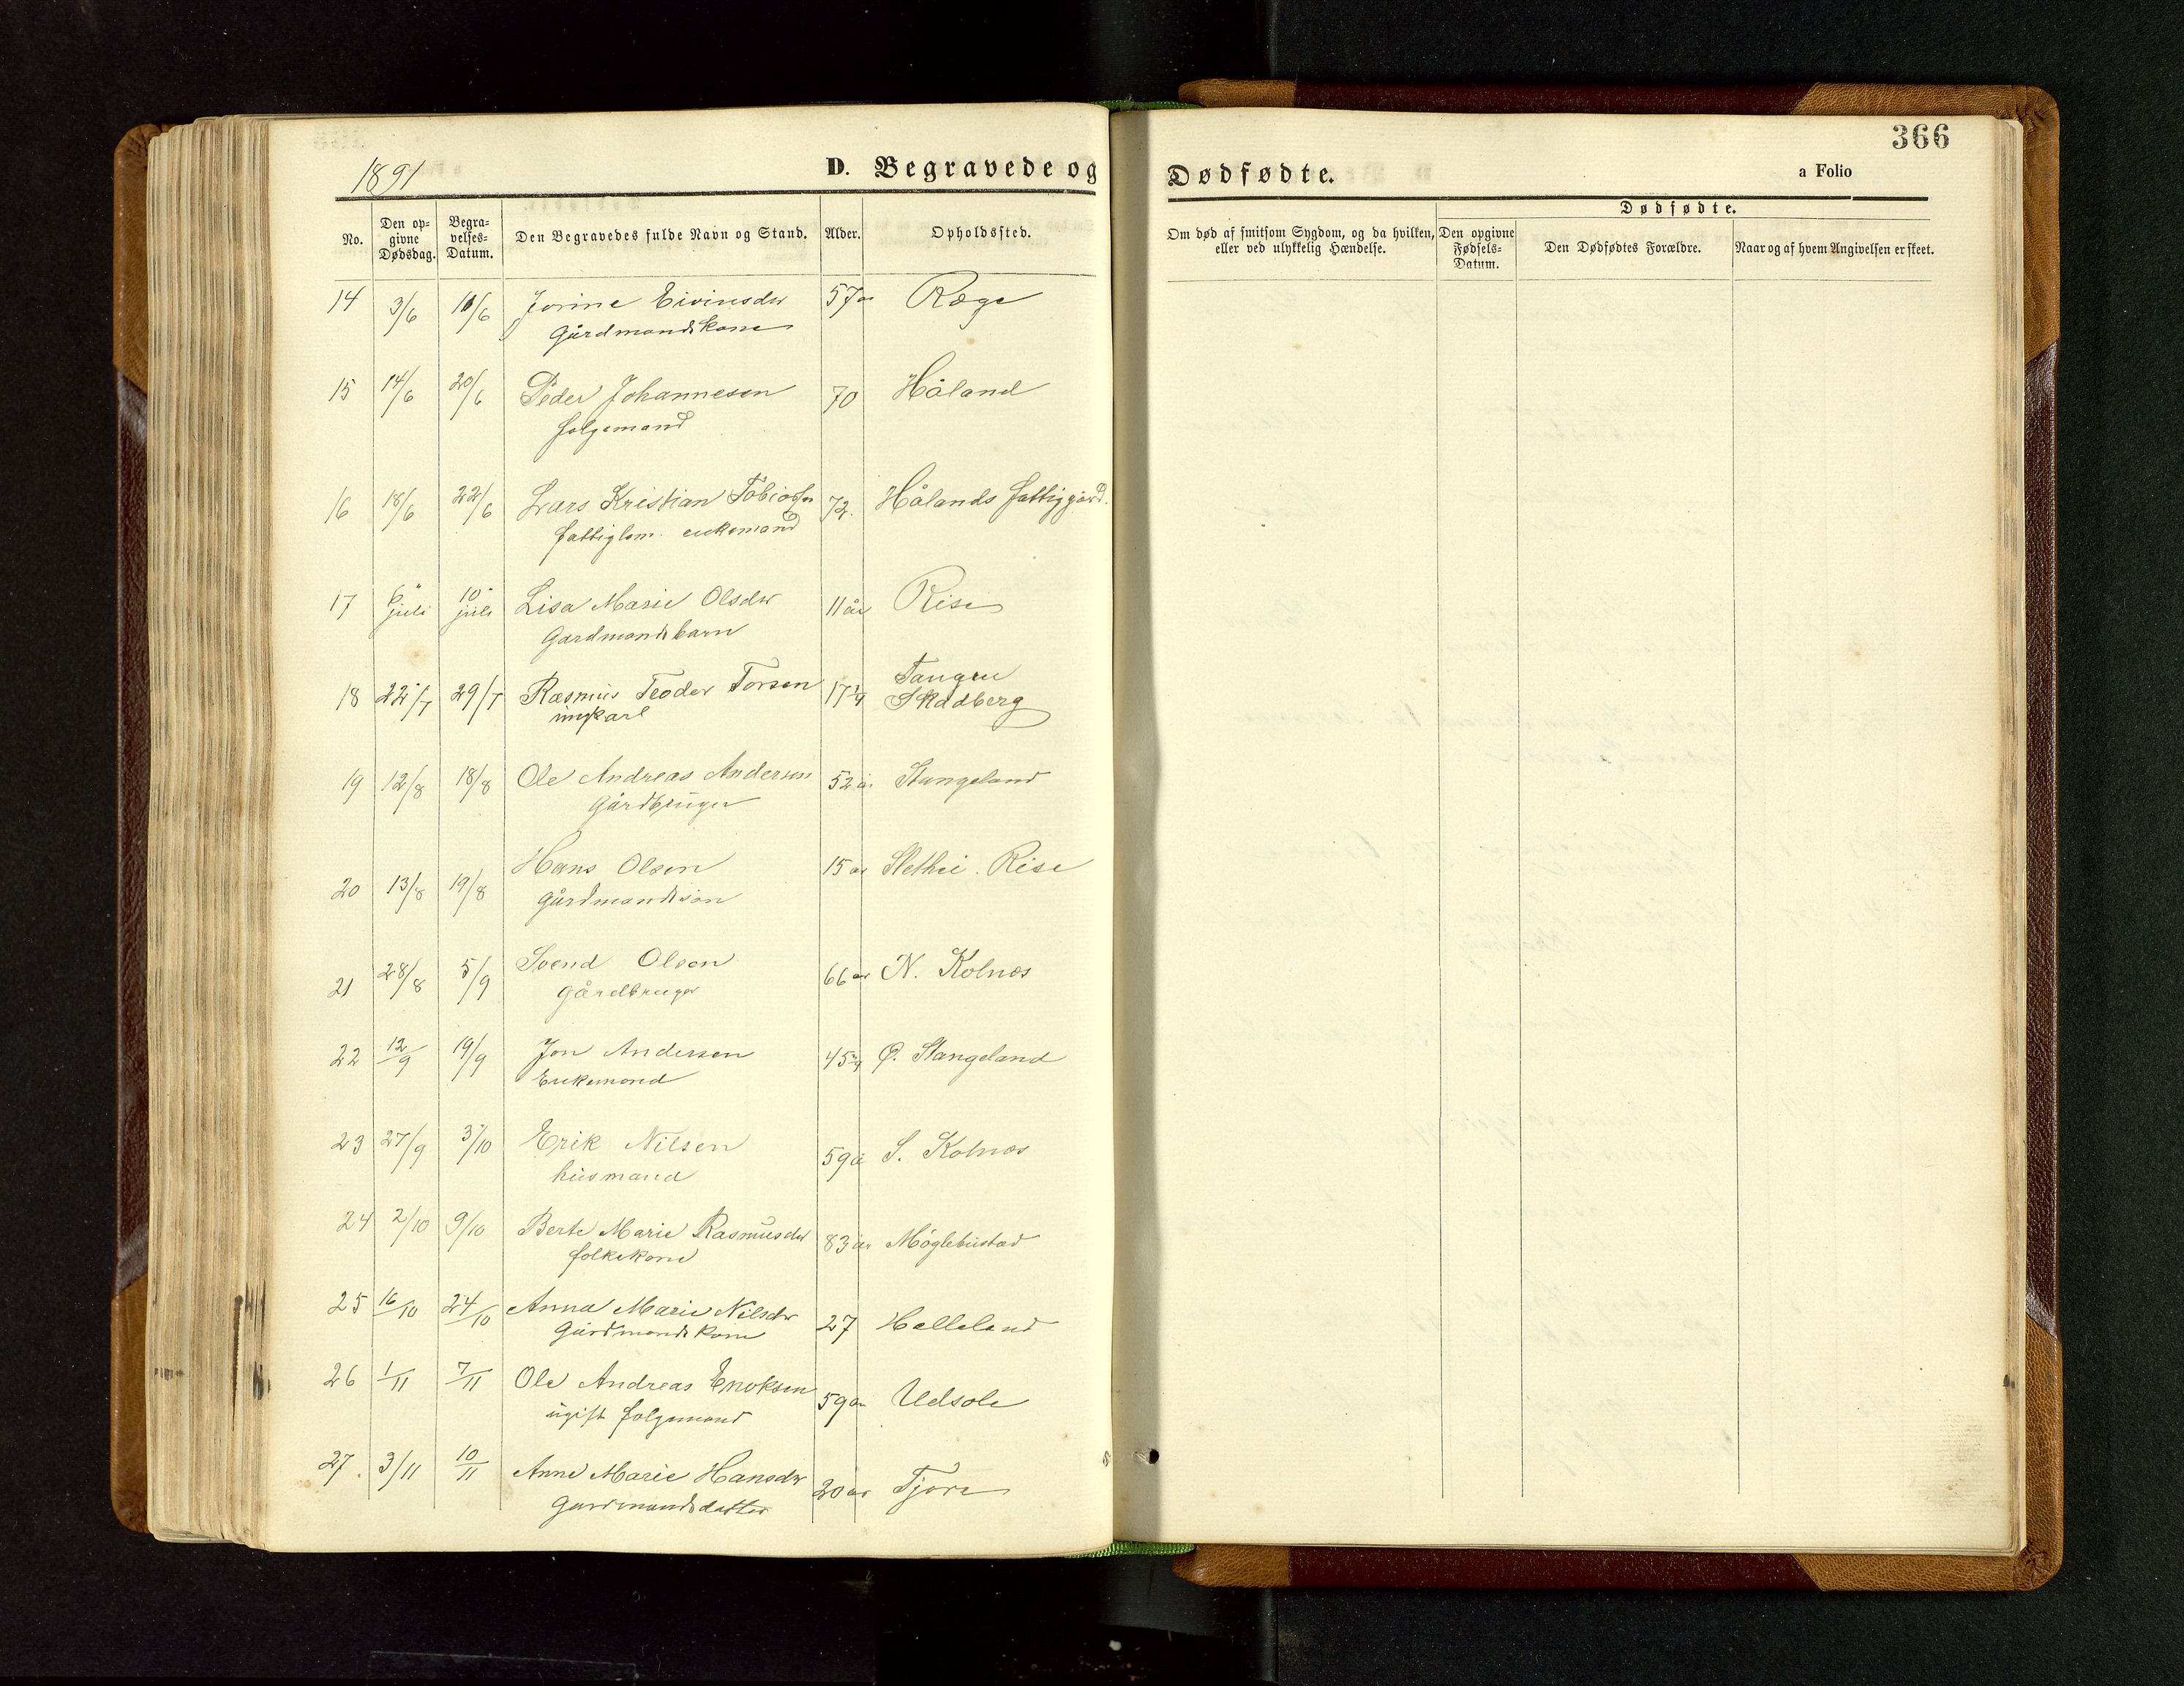 366
1891
D. Begravede og Dødfødte.
a Folio
No.
Den op=
givne
Dødsdag.
Begra=
velses=
Datum.
Den Begravedes fulde Navn og Stand.
Alder.
Opholdssted.
Om død af smitsom Sygdom, og da hvilken,
eller ved ulykkelig Hændelse.
Dødfødte.
Den opgivne
Fødsels=
Datum.
Den Dødfødtes Forældre.
Naar og af hvem Angivelsen er skeet.
14 3/6 10/6 Jorine Eivinsdtr 57 år Ræge
Gårdmandskone
15 14/6 20/6 Peder Johannesen 70 Håland
folgemand
16 18/6 22/6 Lars Kristian Tobiassen 72. Hålands fattiggård.
fattiglem. enkemand
17 6 juli 10 juli Lisa Marie Olsdtr 11 år Rise
Gardmandsbarn
18 22/7 29/7 Rasmus Teodor Torsen 17 3/4 Tangen
ungkarl Skadberg
19 12/8 18/8 Ole Andreas Andersen 52 år Stangeland
Gårdbruger
20 13/8 19/8 Hans Olsen 15 år Slethei. Rise
gårdmandssøn
21 28/8 5/9 Svend Olsen 66 år N. Kolnes
gårdbruger
22 12/9 19/9 Jon Andersen 45 3/4 Ø. Stangeland
Enkemand
23 27/9 3/10 Erik Nilsen 59 å S. Kolnes
husmand
24 2/10 9/10 Berte Marie Rasmusdtr 83 år Møglebustad
folkekone
25 16/10 24/10 Anna Marie Nilsdtr 27 Helleland
Gårdmandskone
26 1/11 7/11 Ole Andreas Enoksen 59 år Udsole
ugift folgemand
27. 3/11 10/11 Anne Marie Hansdtr 20 år Tjore
Gardmandsdatter